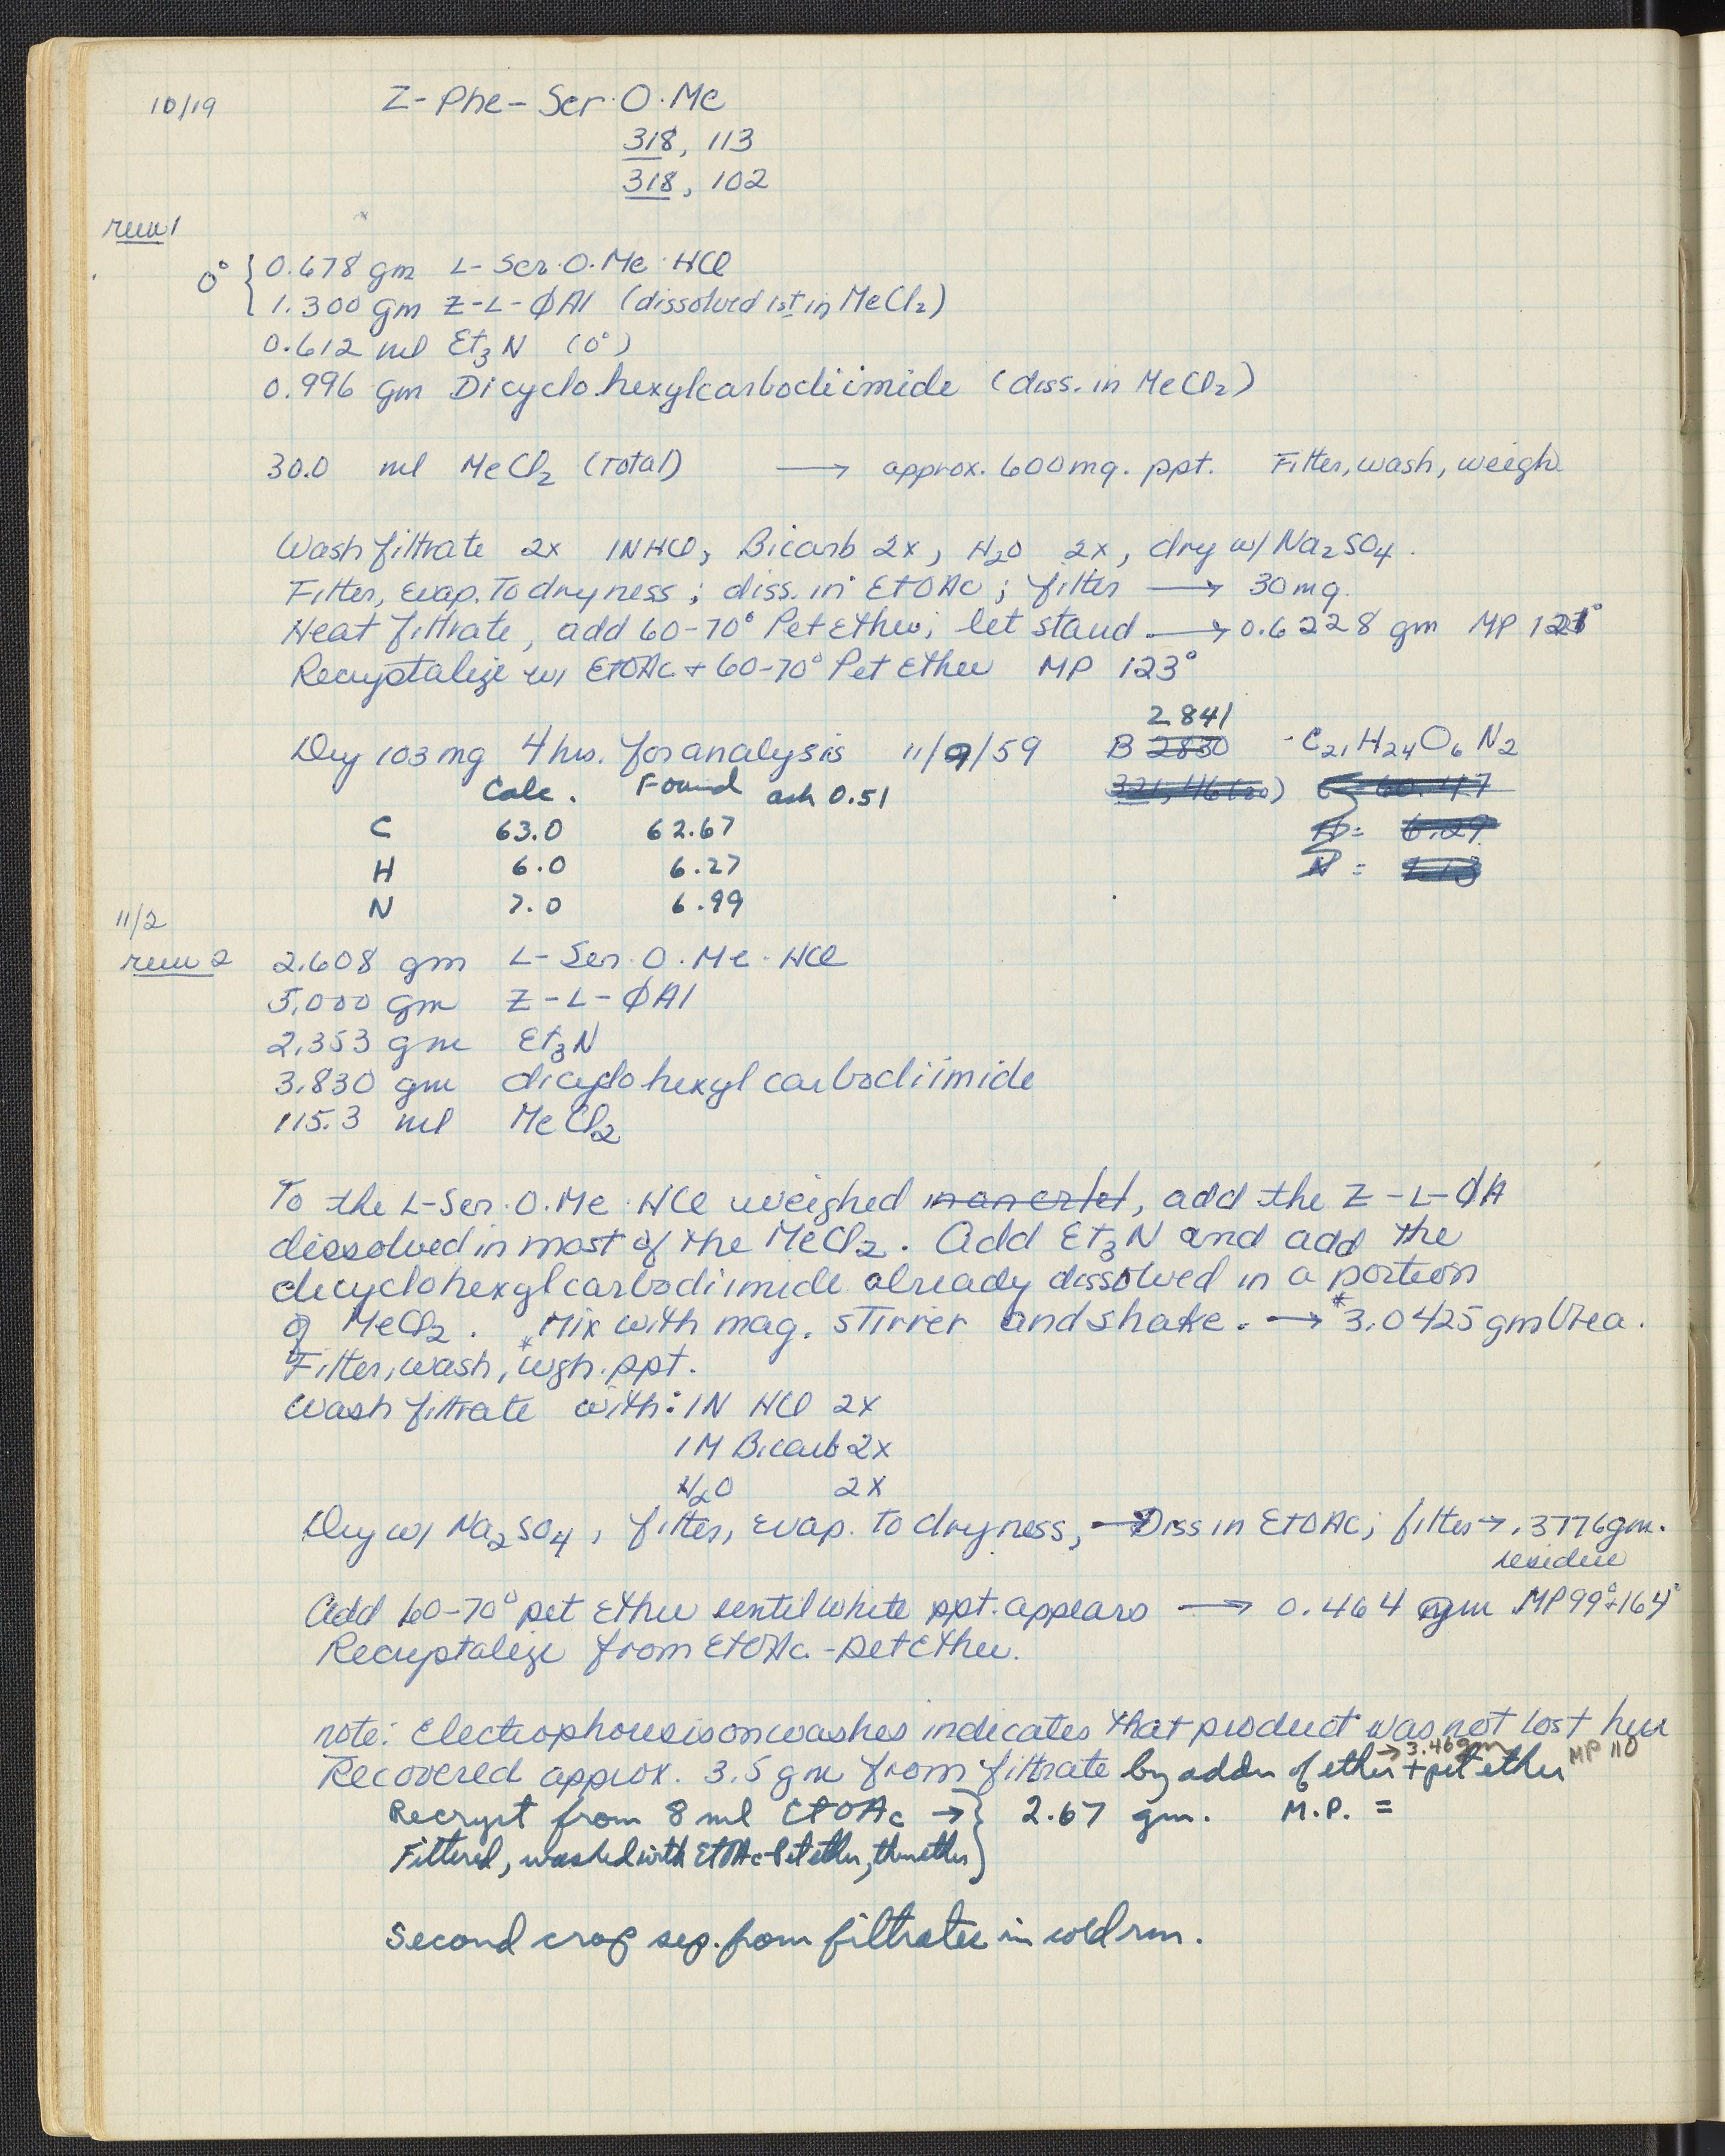 10/19 Z-Phe-Ser·O·Me
318, 113
318, 102
run 1
0° { 0.678 gm L-Ser·O·Me·HCl
1.300 gm Z-L-ØAl (dissolved 1st in MeCl2)
0.612 ml Et3N (0°)
0.996 gm Dicyclohexylcarbodiimide (diss. in MeCl2)
30.0 ml MeCl2 (total) → approx. 600mg. ppt. Filter, wash, weigh.
Wash filtrate 2x 1N HCl, Bicarb 2x, H2O 2x, dry w/ Na2SO4.
Filter, evap. To dryness; diss. in EtOAc; filter → 30 mg.
Heat filtrate, add 60-70° Pet Ether; let stand → 0.6228 gm MP 121°
Recrystalize w/ EtOAc + 60-70° Pet Ether MP 123°
2841
Dry 103 mg 4 hrs. for analysis 11/9/59 B 2830 C21H24O6N2
Calc. Found ash 0.51
C 63.0 62.67
H 6.0 6.27 H = 6.29
N 7.0 6.99 N =
11/2
run 2 2.608 gm L-Ser·O·Me·HCl
5.000 gm Z-L-ØAl
2.353 gm Et3N
3.830 gm dicyclohexylcarbodiimide
115.3 ml MeCl2
To the L-Ser·O·Me·HCl weighed, add the Z-L-ØA
dissolved in most of the MeCl2. Add Et3N and add the
dicyclohexylcarbodiimide already dissolved in a portion
of MeCl2. Mix with mag. stirrer and shake. → *3.0425 gm Urea.
Filter, wash, *wgh. ppt.
Wash filtrate with: 1N HCl 2x
1M Bicarb 2x
H2O 2x
Dry w/ Na2SO4, filter, evap. to dryness, → Diss in EtOAc; filter → .3776gm.
residue
Add 60-70° pet ether until white ppt. appears → 0.464 gm MP 99°+164°
Recrystalize from EtOAc-pet Ether.
note: Electrophoresis on washes indicates that product was not lost here
→ 3.46gm MP 110
Recovered approx. 3.5 gm from filtrate by addn of ether + pet ether
Recryst from 8 ml EtOAc → } 2.67 gm. M.P. =
Filtered, washed with EtOAc-Pet ether, then ether }
Second crop sep. from filtrates in cold rm.